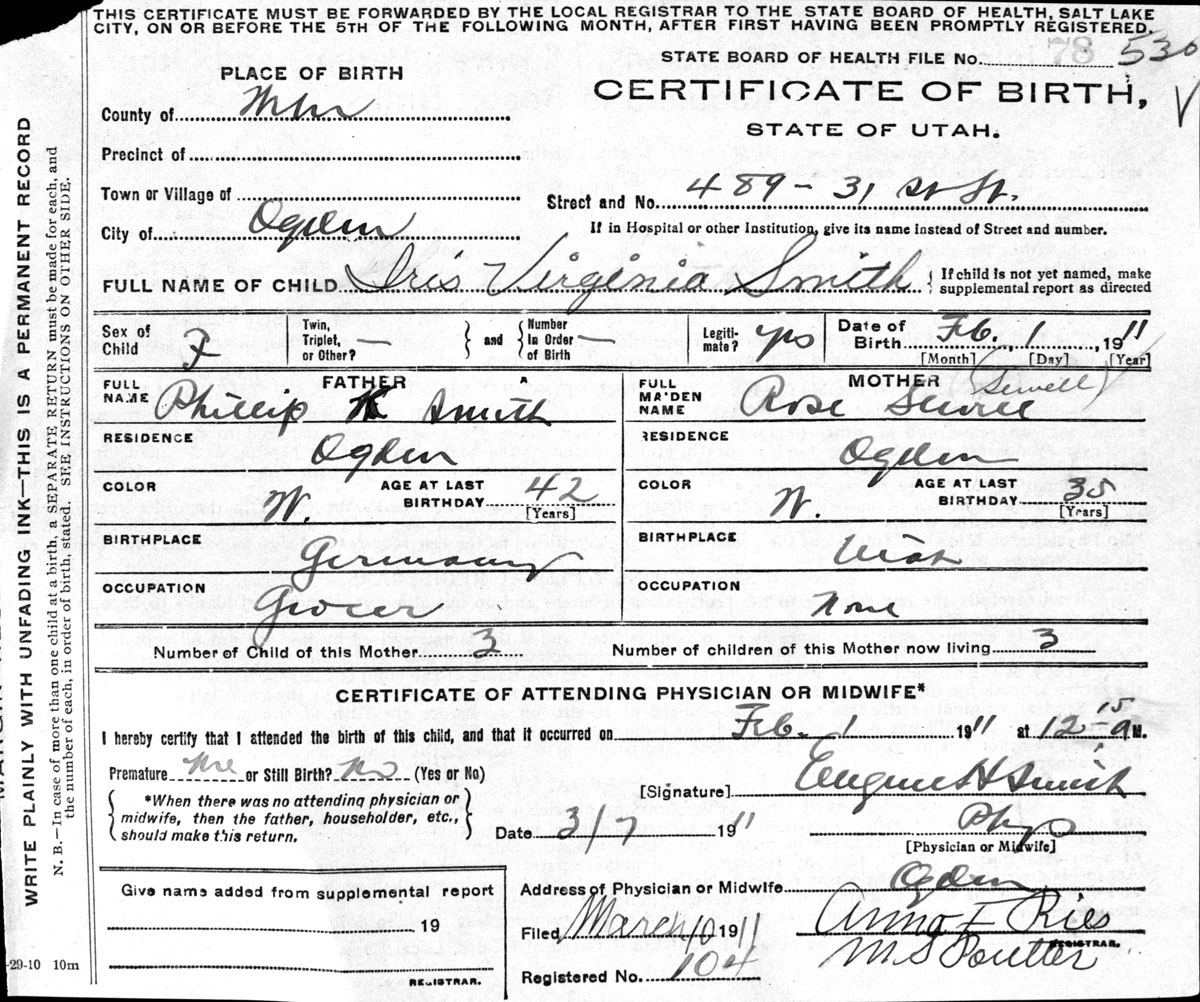 THIS CERTIFICATE MUST BE FORWARDED BY THE LOCAL REGISTRAR TO THE STATE BOARD OF HEALTH, SALT LAKE
CITY, ON OR BEFORE THE 5TH OF THE FOLLOWING MONTH, AFTER FIRST HAVING BEEN PROMPTLY REGISTERED.
WRITE PLAINLY WITH UNFADING INK—THIS IS A PERMANENT RECORD
N. B.—In case of more than one child at a birth, a SEPARATE RETURN must be made for each, and
the number of each, in order of birth, stated. SEE INSTRUCTIONS ON OTHER SIDE.
STATE BOARD OF HEALTH FILE No. 78 530
PLACE OF BIRTH
CERTIFICATE OF BIRTH,
STATE OF UTAH.
County of
Precinct of
Town or Village of
Street and No. 489 - 31 st St.
City of Ogden
If in Hospital or other Institution, give its name instead of Street and number.
FULL NAME OF CHILD Iris Virginia Smith
If child is not yet named, make
supplemental report as directed
Sex of Child F
Twin, Triplet, or Other? —
and
Number In Order of Birth —
Legiti-mate? yes
Date of Birth Feb. 1, 1911
[Month] [Day] [Year]
FATHER
FULL NAME Phillip K Smith
RESIDENCE Ogden
COLOR W.
AGE AT LAST BIRTHDAY 42
[Years]
BIRTHPLACE Germany
OCCUPATION Grocer
MOTHER (Sewell)
FULL MAIDEN NAME Rose
RESIDENCE Ogden
COLOR W.
AGE AT LAST BIRTHDAY 35
[Years]
BIRTHPLACE Utah
OCCUPATION None
Number of Child of this Mother 3
Number of children of this Mother now living 3
CERTIFICATE OF ATTENDING PHYSICIAN OR MIDWIFE*
I hereby certify that I attended the birth of this child, and that it occurred on Feb. 1 1911 at 12 15 a M.
Premature or Still Birth? No (Yes or No)
*When there was no attending physician or
midwife, then the father, householder, etc.,
should make this return.
[Signature] Eugene H Smith
Date 3/7 1911
Phys
[Physician or Midwife]
Give name added from supplemental report
19
REGISTRAR.
Address of Physician or Midwife Ogden
Filed March 10 1911
Anna F Ries
REGISTRAR.
Registered No. 104
-29-10 10m